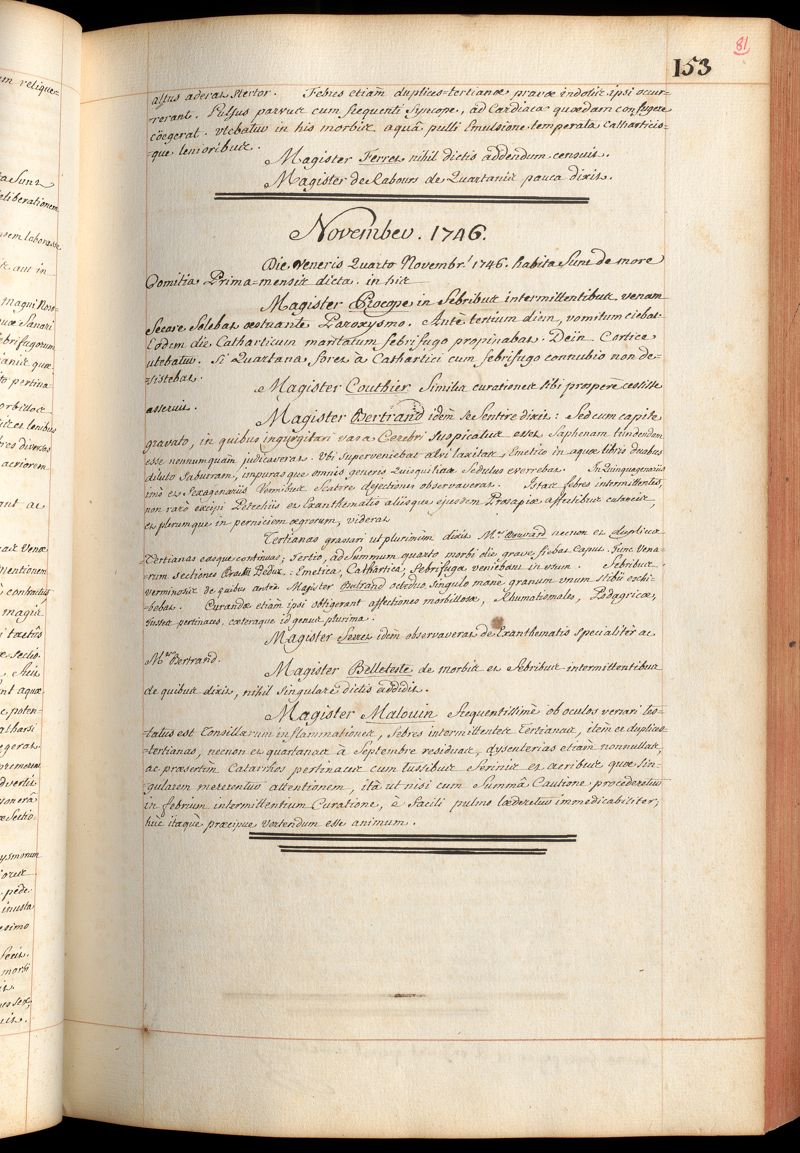 81
153
altus aderat stertor. Febres etiam duplices-tertianæ pravæ indolis ipsi occur-
rerant. Pulsus parvus cum frequenti Syncope, ad Cardiaca quædam confugere
cöegerat. vtebatur in his morbis aquâ pulli Emulsione temperata Catharticis-
que lenioribus.
Magister Ferret nihil dictis addendum censuit.
Magister de Rabours de Quartanis pauca dixit.
November. 1746.
Die Veneris Quarto Novembr.' 1746. habita Sunt de more
Comitia Prima-mensis dicta. in his
Magister Procope in Febribus intermittentibus venam
Secare Solebat æstuante Paroxysmo. Antè tertium diem, vomitum ciebat
Eodem die Catharticum maritatum febrifugo propinabat. Deïn Cortice
utebatur. Si Quartana foret à Cathartici cum febrifugo connubio non de-
sistebat.
Magister Couthier Similia curationes sibi prosperè cessisse
asseruit.
Magister Bertrand idem se Sentire dixit: Sed cum capite
gravato, in quibus ingurgitari vasa Cerebri suspicatus esset Saphenam tundendam
esse nonnumquam judicaverat. Vbi superveniebat alvi laxitas, Emetico in aquæ libris duabus
diluto Saburram, impurasque omnis generis Quisquilias Sedulus everrebat. In Quinquagenariis
imò et Sexagenariis Vermibus Scatere dejectiones observaverat. Istas febres intermittentes,
non rarò excipi Petechiis et Exanthematis aliisque ejusdem Prosapiæ affectibus cutaneis,
et plerumque in perniciem ægrorum, viderat
Tertianas grassari ut plurimùm dixit M.er Bouvard necnon et duplices
Tertianas easque continuas; Tertio, ad Summum quarto morbi die, grave fiebat Caput. Tunc Vena-
rum sectiones Emetica, Cathartica, Febrifuga veniebant in vsum. Febribus
verminosis de quibus antea Magister Bertrand octiduo, singulo mane granum vnum stibii exhi-
bebat. Curandæ etiam ipsi obtigerant affectiones morbillosæ, Rhumatismales, Podagricæ,
tusses pertinaces, cæteraque id genus plurima.
Magister Ferret idem observaverat de Exanthematis specialiter ac
M.er Bertrand.
Magister Belleteste de morbis et Febribus intermittentibus
de quibus dixit, nihil singulare dictis addidit.
Magister Malouin Frequentissimè ob oculos versari tes-
tatus est Tonsillarum inflammationes, febres intermittentes Tertianas, item et duplices-
tertianas, necnon et quartanas à Septembre residuas, dysenterias etiam nonnullas,
ac præsertim Catarrhos pertinaces cum tussibus Ferinis et acribus quæ sin-
gularem merentur attentionem, ità ut nisi cum Summâ Cautione procederetur
in febrium intermittentium Curatione, è facili pulmo læderetur immedicabiliter;
hùc itaque præcipue vertendum esse animum.